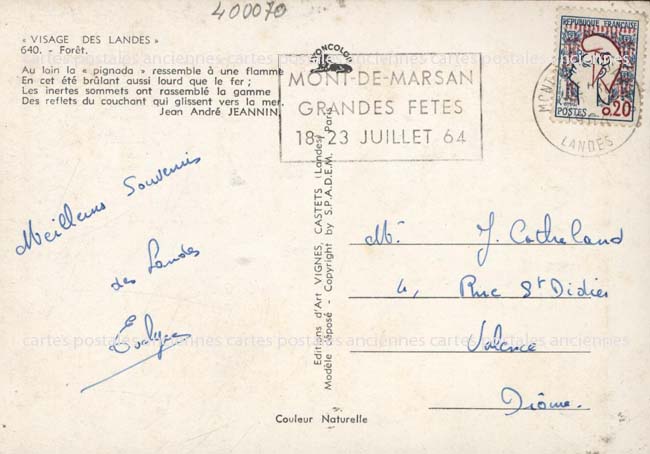 400070
« VISAGE DES LANDES »
640. - Forêt.
Au loin la « pignada » ressemble à une flamme
En cet été brûlant aussi lourd que le fer ;
Les inertes sommets ont rassemblé la gamme
Des reflets du couchant qui glissent vers la mer.
Jean André JEANNIN.
MONT-DE-MARSAN
GRANDES FETES
18-23 JUILLET 64
REPUBLIQUE FRANÇAISE
0,20
POSTES
MONT
LANDES
Meilleurs Souvenirs
des Landes
Evelyne
Editions d'Art VIGNES, CASTETS (Landes)
Modèle déposé - Copyright by S.P.A.D.E.M. Paris
M. J. Catheland
4, Rue St Didier
Valence
Drôme.
cartes postales anciennes cartes postales anciennes cartes postales anciennes
Couleur Naturelle